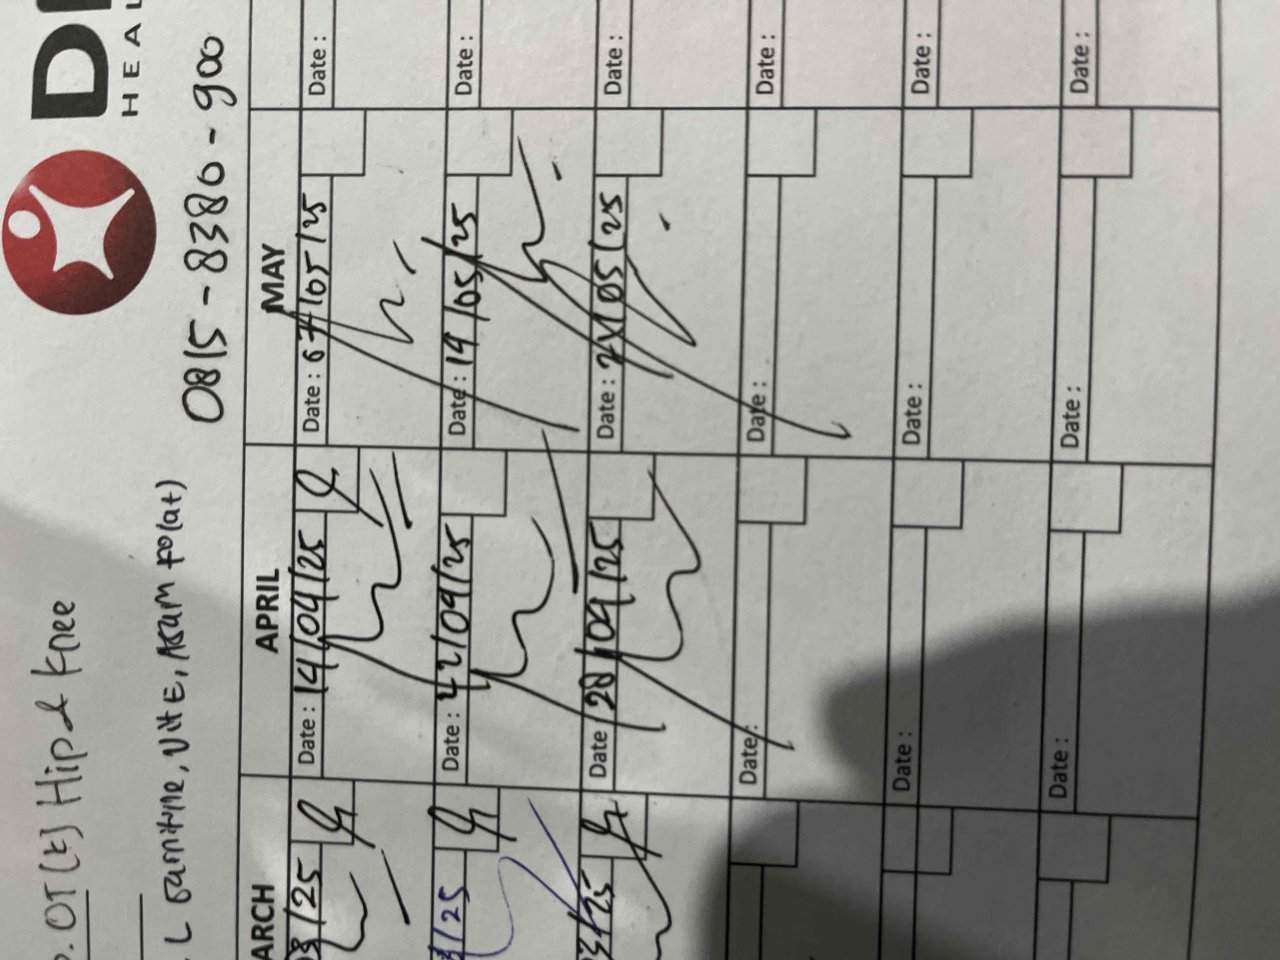 D
HEAL
OT (t) Hip & knee
L carnitine, Vit E, Asam folat)
0815-8380-900
ARCH APRIL MAY
/25 Date : 14/04/25 Date : 07/05/25 Date :
/25 Date : 22/04/25 Date : 14/05/25 Date :
03/25 Date : 28/04/25 Date : 21/05/25 Date :
Date : Date : Date :
Date : Date : Date :
Date : Date : Date :